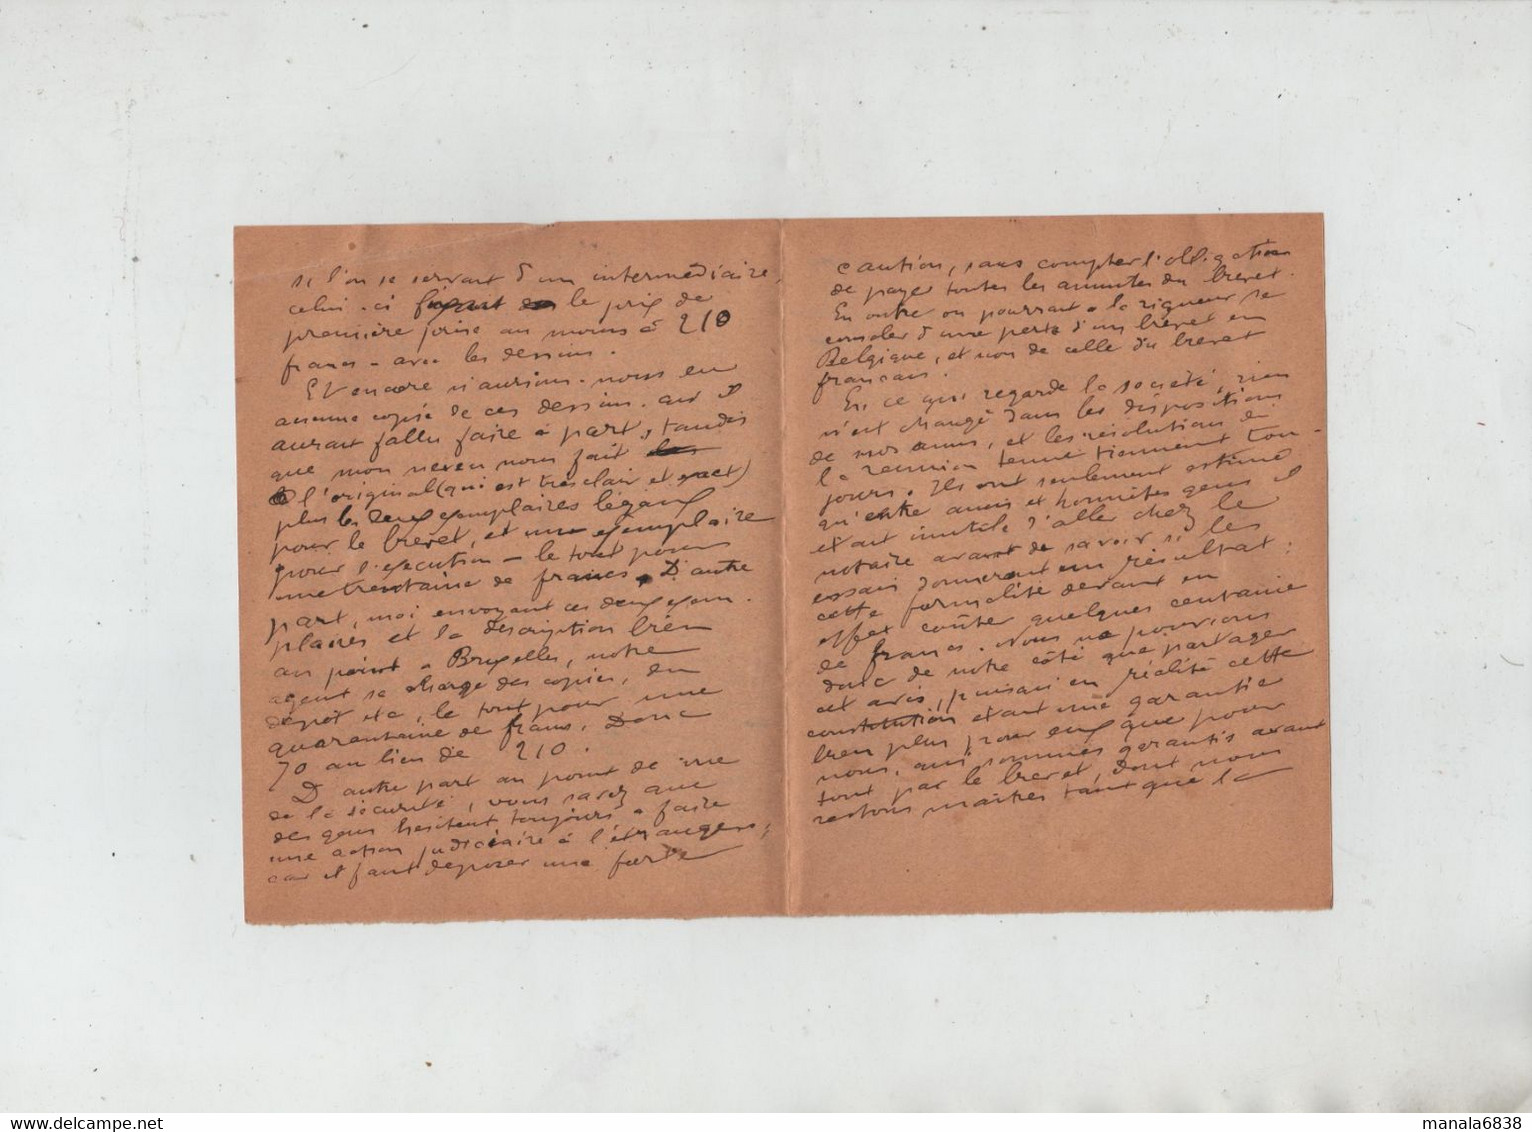 si l'on se servant d'un intermédiaire,
celui-ci fixant le prix de
première prise au moins à 210
francs - avec les dessins.
Et encore n'aurions-nous eu
aucune copie de ces dessins. car il
aurait fallu faire à part, tandis
que mon neveu nous fait
l'original (qui est très clair et exact)
plus les deux exemplaires légaux
pour le brevet, et une exemplaire
pour l'exécution - le tout pour
une trentaine de francs. D'autre
part, moi envoyant ces deux exem-
plaires et la description bien
au point à Bruxelles, notre
agent se charge des copies, du
dépôt etc, le tout pour une
quarantaine de francs. Donc
70 au lieu de 210.
D'autre part au point de vue
de la sécurité, vous savez que
des gens hésitent toujours à faire
une action judiciaire à l'étranger;
car il faut déposer une forte
caution, sans compter l'obligation
de payer toutes les annuités du brevet.
En outre on pourrait à la rigueur se
consoler d'une perte d'un brevet en
Belgique, et non de celle du brevet
français.
En ce qui regarde la société, rien
n'est changé dans les dispositions
de mes amis, et les résolutions de
la réunion tenue tiennent tou-
jours. Ils ont seulement estimé
qu'entre amis et honnêtes gens il
était inutile d'aller chez le
notaire avant de savoir si les
essais donneront un résultat:
cette formalité devant en
effet coûter quelques centaine
de francs. Nous ne pouvions
donc de notre côté que partager
cet avis, puisqu'en réalité cette
constitution étant une garantie
bien plus pour eux que pour
nous, qui sommes garantis avant
tout par le brevet, dont nous
restons maîtres tant que la
manala6838